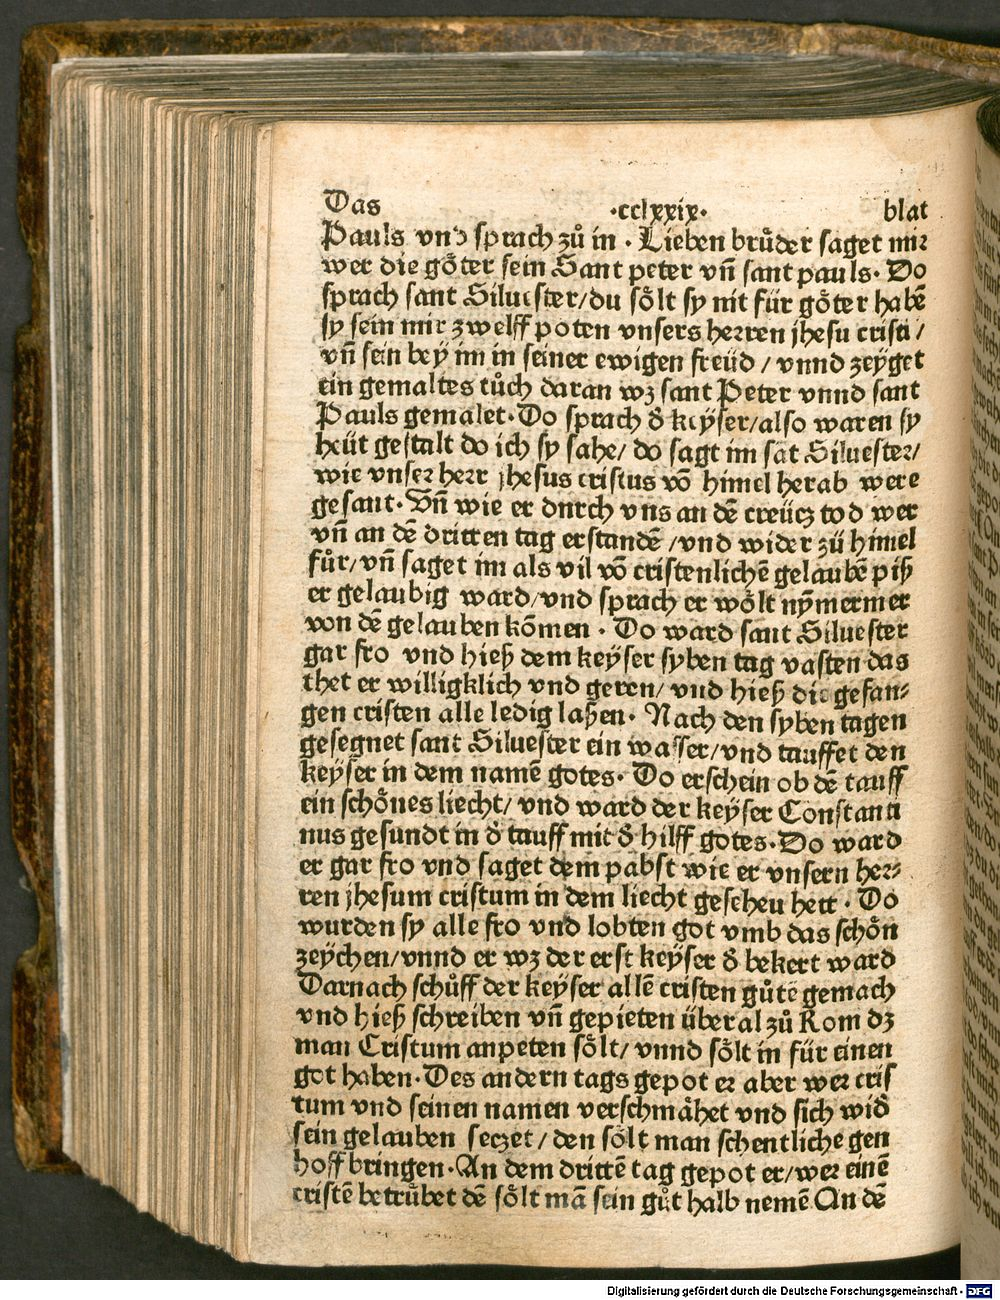 Das ·cclxxix· blat
Pauls vnd sprach zů in · Lieben brůder saget mir
wer die göter sein Sant peter vñ sant pauls· Do
sprach sant Siluester/du sölt sy nit für göter habē
sy sein mir zwelff poten vnsers herren jhesu cristi/
vñ sein bey im in seiner ewigen freüd/vnnd zeyget
ein gemaltes tůch daran wz sant Peter vnnd sant
Pauls gemalet·Do sprach d̕ keyser/also waren sy
heüt gestalt do ich sy sahe/do sagt im sāt Siluester/
wie vnser herr jhesus cristus vō himel herab were
gesant·Vñ wie er durch vns an dē creücz tod wer
vñ an dē dritten tag erstandē/vnd wider zů himel
fůr/vñ saget im als vil vō cristenlichē gelaubē piß
er gelaubig ward/vnd sprach er wölt nymermer
von dē gelauben kōmen · Do ward sant Siluester
gar fro vnd hieß dem keyser syben tag vasten das
thet er willigklich vnd geren/vnd hieß die gefan-
gen cristen alle ledig laßen· Nach den syben tagen
gesegnet sant Siluester ein wasser/vnd tauffet den
keyser in dem namē gotes· Do erschein ob dē tauff
ein schönes liecht/vnd ward der keyser Constanti
nus gesundt in d̕ tauff mit d̕ hilff gotes·Do ward
er gar fro vnd saget dem pabst wie er vnsern her-
ren jhesum cristum in dem liecht gesehen hett · Do
wurden sy alle fro vnd lobten got vmb das schön
zeychen/vnnd er wz der erst keyser d̕ bekert ward
Darnach schůff der keyser allē cristen gůtē gemach
vnd hieß schreiben vñ gepieten überal zů Rom dz
man Cristum anpeten sölt/vnnd sölt in für einen
got haben·Des andern tags gepot er aber wer cris
tum vnd seinen namen verschmähet vnd sich wid̕
sein gelauben seczet/den sölt man schentliche gen
hoff bringen·An dem drittē tag gepot er/wer einē
cristē betrübet dē sölt mā sein gůt halb nemē An dē
Digitalisierung gefördert durch die Deutsche Forschungsgemeinschaft - DFG